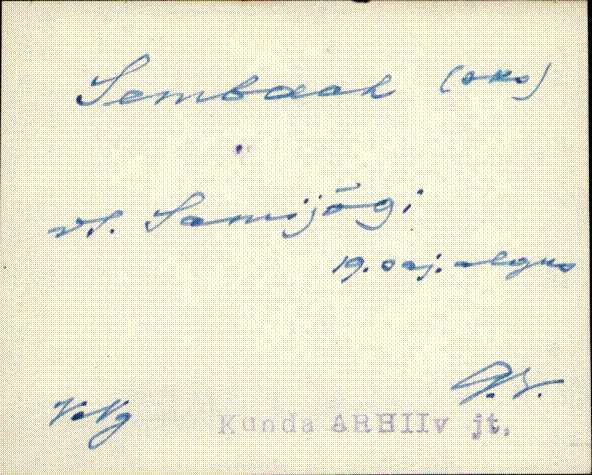 Sembach (oko)
vt. Samijõgi
19. saj. algus
V.Ng
Kunda ARHIIv jt.